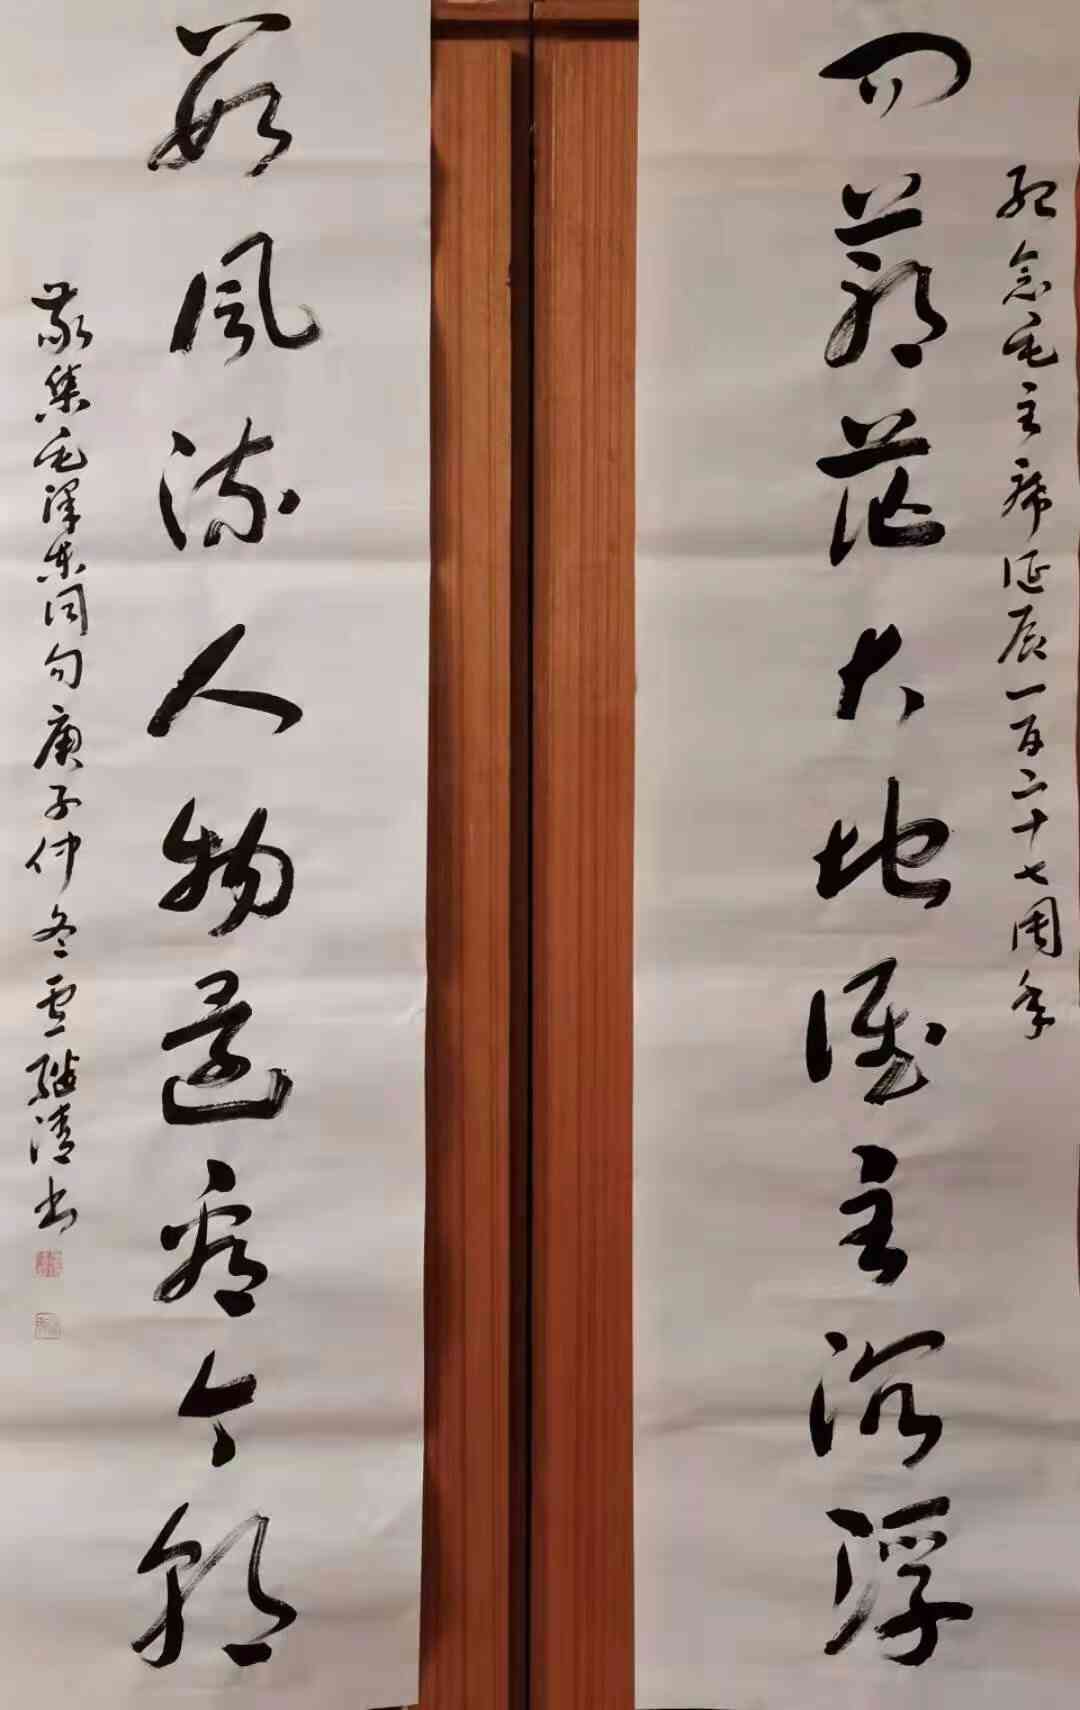 纪念毛主席诞辰一百二十七周年
问苍茫大地谁主沉浮
数風流人物還看今朝
敬集毛泽东词句庚子仲冬雪继清书